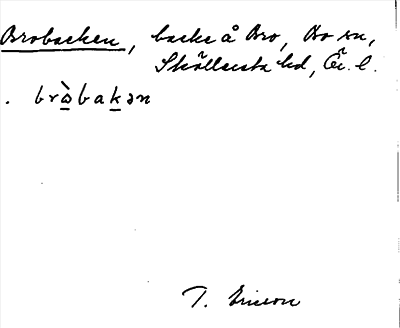 Brobacken, backe å Bro, Bo sn,
Skyllersta hd, Ör. l.
. bròbakən
T. Ericson